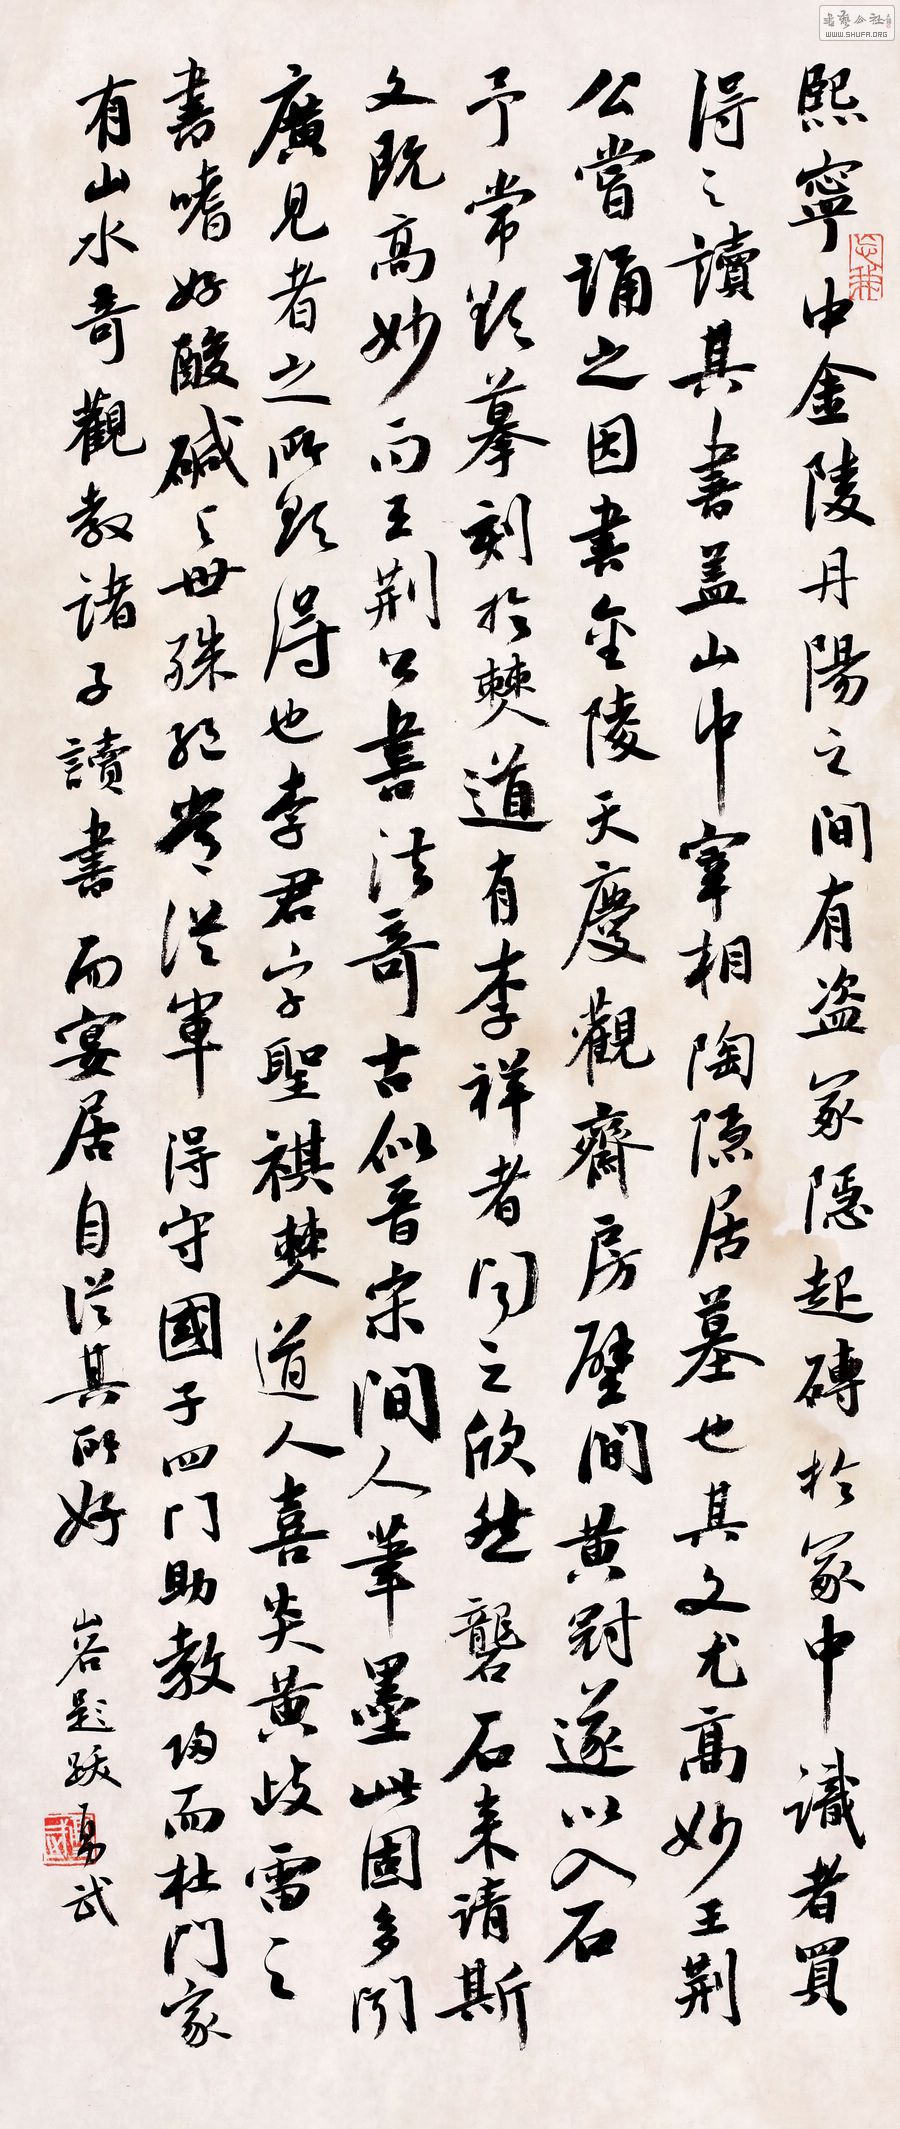 熙寧中金陵丹陽之間有盗冢隱起磚於冢中識者買
得之讀其書盖山中宰相陶隱居墓也其文尤高妙王荊
公嘗誦之因書金陵天慶觀齋房壁間黄冠遂以入石
予常欲摹刻於僰道有李祥者聞之欣然礱石来請斯
文既高妙而王荊公書法奇古似晉宋間人筆墨此固多聞
廣見者之所欲得也李君字聖祺僰道人喜炎黄歧雷之
書嗜好酸碱與世殊絶嘗從軍得守國子四門助教歸而杜門家
有山水奇觀教諸子讀書而宴居自從其所好
山谷題跋 易武
書藝公社
WWW.SHUFA.ORG